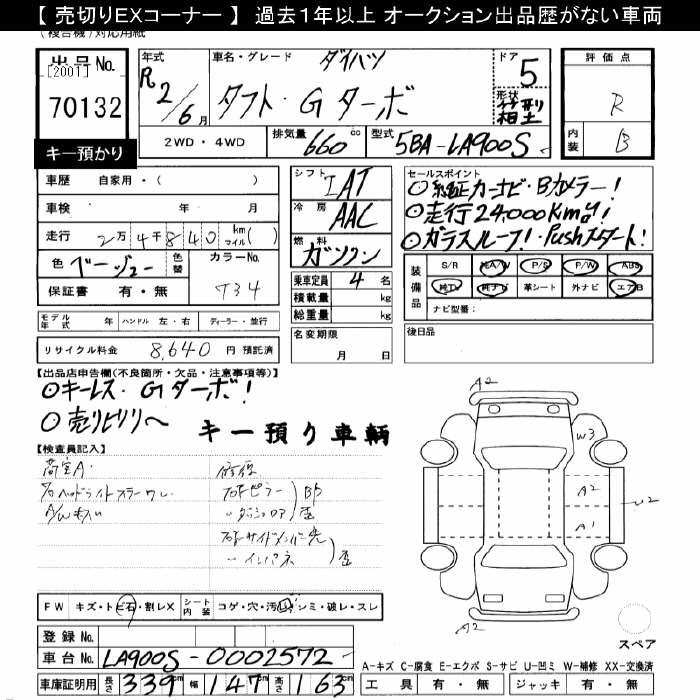 【 売切りEXコーナー 】 過去1年以上 オークション出品歴がない車両
(複合機)対応用紙
出品No.
[2001]
70132
キー預かり
年式
R2/6月
車名・グレード
ダイハツ
タフト・Gターボ
ドア
5
形状
箱型
2WD・4WD
排気量 660cc
型式 5BA-LA900S
評価点
R
内装 B
車歴 自家用・( )
車検 年 月
走行 2万4千840 km マイル( )
色 ベージュー 色替 カラーNo.
保証書 有・無 T34
シフト IAT
冷房 AAC
燃料 ガソリン
乗車定員 4名
積載量 kg
総重量 kg
名変期限
月 日
セールスポイント
○純正カーナビ・Bカメラー!
○走行24000Km台!
○ガラスルーフ!・Pushスタート!
装備品
S/R 純A/W P/S P/W ABS
純TV 純ナビ 革シート 外ナビ エアB
ナビ型番:
後日品
モデル年式 年 ハンドル 左・右 ディーラー・並行
リサイクル料金 8,640 円 預託済
【出品店申告欄(不良箇所・欠品・注意事項等)】
○キーレス・Gターボ!
○売りピリリ〜
キー預り車輌
【検査員記入】
ヘッドライト
A/W キズ
修復
ピラー
サイドメンバー先
インパネ
A2
W3
A2
A1
U2
A2
スペア
FW キズ・トビ石・割レX シート内装 コゲ・穴・汚レ・シミ・破レ・スレ
登録No.
車台No. LA900S-0002572
車庫証明用 長さ 339cm 幅 147cm 高さ 163cm
A-キズ C-腐食 E-エクボ S-サビ U-凹ミ W-補修 XX-交換済
工具 有・無 ジャッキ 有・無